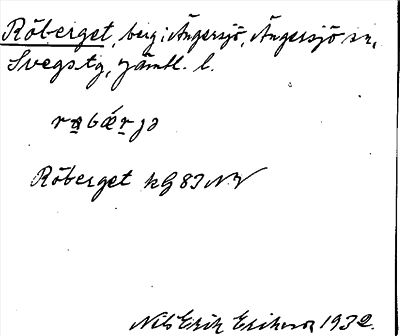 Röberget, berg i Ängersjö, Ängersjö sn,
Svegs tg, Jämtl. l.
Röberget kG 83 NV
Nils Erik Eriksson 1932.